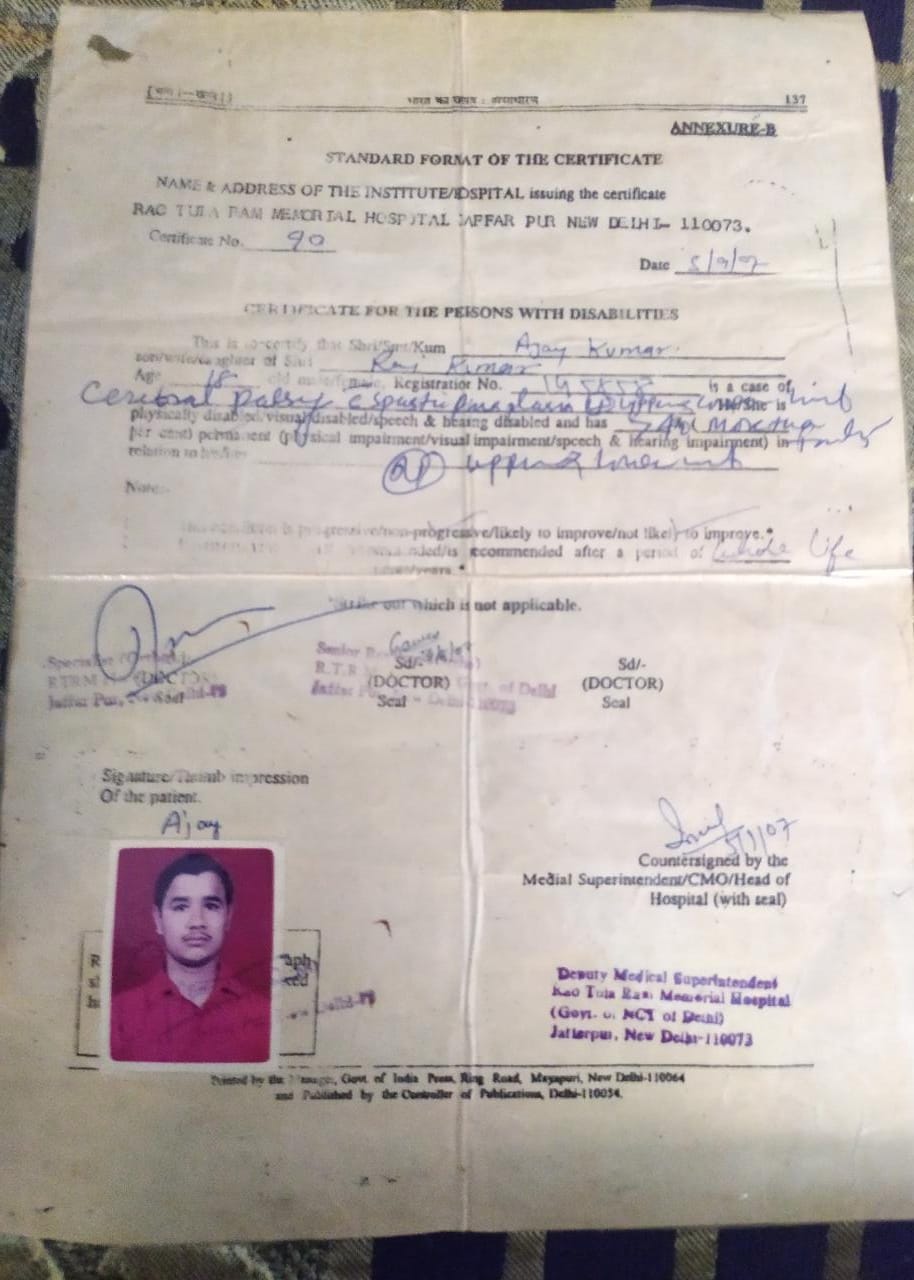 137
ANNEXURE-B
STANDARD FORMAT OF THE CERTIFICATE
NAME & ADDRESS OF THE INSTITUTE/HOSPITAL issuing the certificate
RAO TULA RAM MEMORIAL HOSPITAL JAFFAR PUR NEW DELHI- 110073.
Certificate No. 90
Date
CERTIFICATE FOR THE PERSONS WITH DISABILITIES
This is to certify that Shri/Smt/Kum Ajay Kumar
son/wife/daughter of Shri Raj Kumar
Age 18 old male/female, Registration No. is a case of
Cerebral Palsy limb He/She is
physically disabled/visual disabled/speech & hearing disabled and has
per cent) permanent (physical impairment/visual impairment/speech & hearing impairment) in
relation to his/her
upper & lower limb
Note:-
This condition is progressive/non-progressive/likely to improve/not likely to improve.*
is recommended after a period of whole life
years.*
*Strike out which is not applicable.
(DOCTOR)
Seal
Jaffar Pur,
Senior
Sd/-
R.T.R
(DOCTOR)
Govt. of Delhi
Seal
Sd/-
(DOCTOR)
Seal
Signature/Thumb impression
Of the patient.
Ajay
Countersigned by the
Medial Superintendent/CMO/Head of
Hospital (with seal)
Deputy Medical Superintendent
Rao Tula Ram Memorial Hospital
(Govt. of NCT of Delhi)
Jafferpur, New Delhi-110073
Printed by the Manager, Govt. of India Press, Ring Road, Mayapuri, New Delhi-110064
and Published by the Controller of Publications, Delhi-110054.